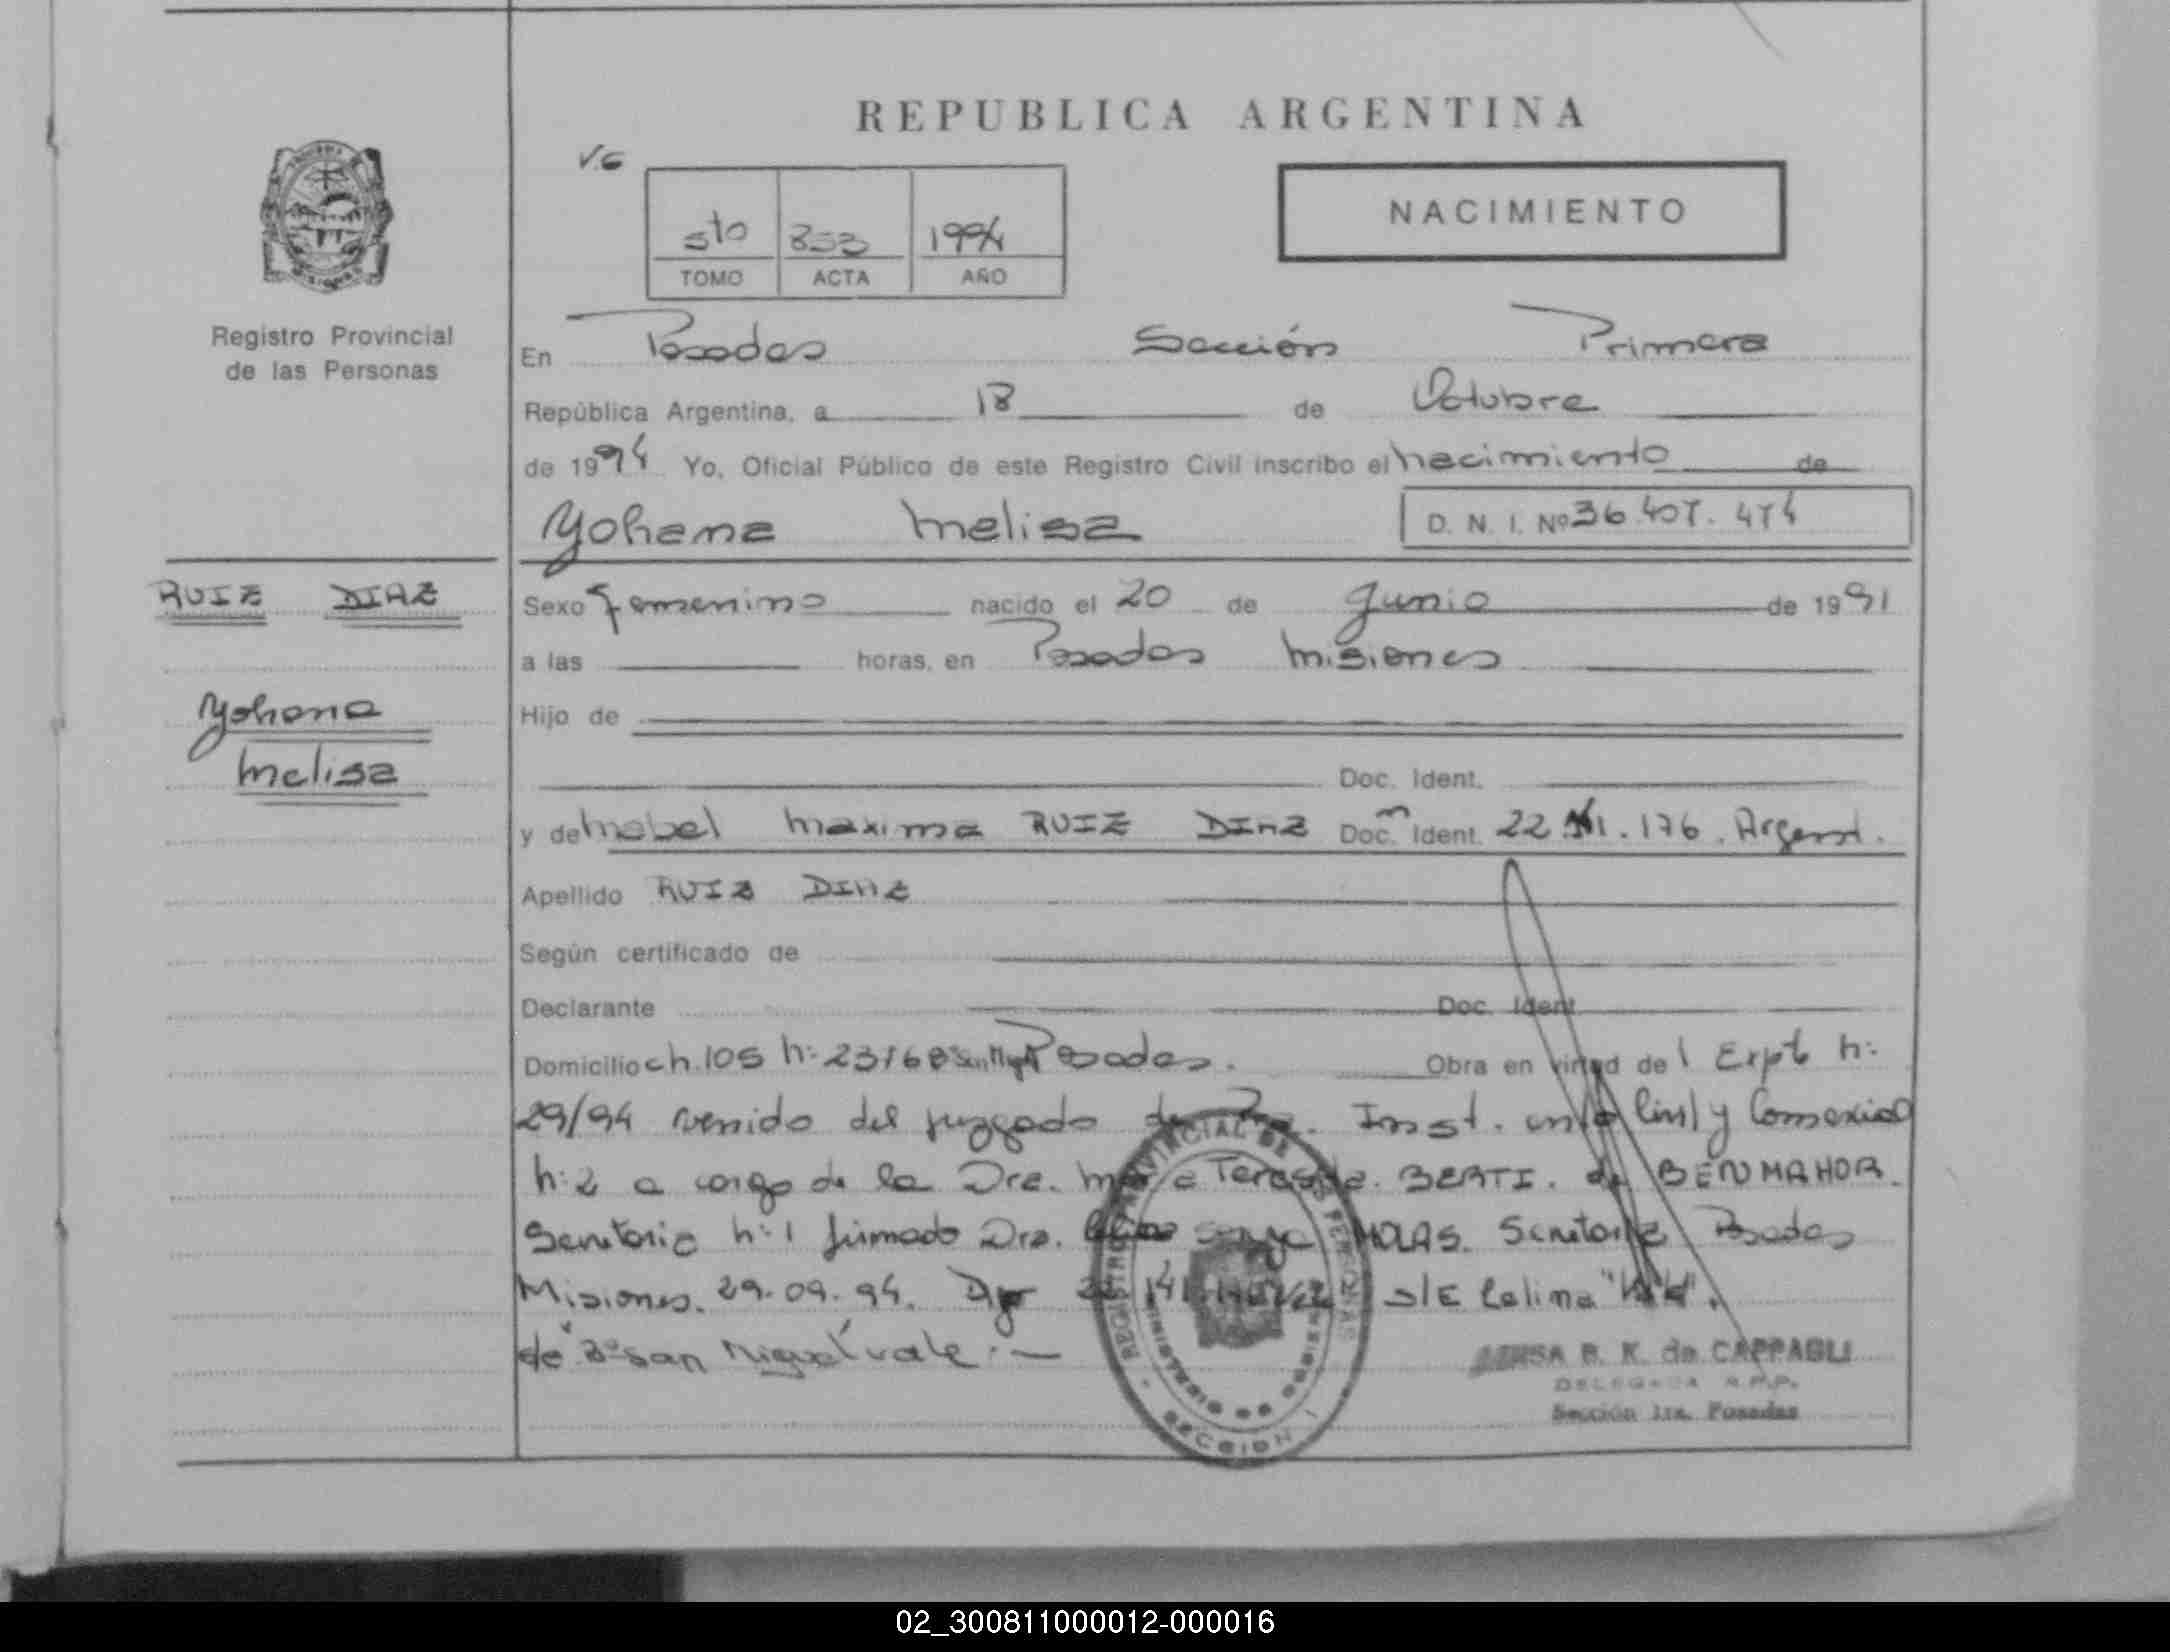 REPUBLICA ARGENTINA
V.G
5to 853 1994
TOMO ACTA AÑO
NACIMIENTO
Registro Provincial
de las Personas
En Posadas Sección Primera
República Argentina, a 18 de Octubre
de 1994 Yo, Oficial Público de este Registro Civil inscribo el nacimiento de
Yohana Melisa D. N. I. Nº 36.407.474
RUIZ DIAZ
Yohana
Melisa
Sexo femenino nacido el 20 de Junio de 1991
a las horas, en Posadas Misiones
Hijo de
Doc. Ident.
y de Mabel Maxima RUIZ DIAZ Doc. Ident. 22 176. Argent.
Apellido RUIZ DIAZ
Según certificado de
Declarante Doc. Ident.
Domicilio ch. 105 N: 23168 Posadas. Obra en virtud del Expte N:
29/94 venido del juzgado de Inst. en lo Civil y Comercial
N:2 a cargo de la Dra. Teresa BERTI. de BENMAHOR.
Secretaria N:1 firmado Dra. MOLAS. Secretaria Posadas
Misiones. 29.09.94. S/E Celina
de "Bº San Miguel" vale.-
REGISTRO PROVINCIAL DE LAS PERSONAS
MINISTERIO DE GOBIERNO
SECCION 1
B. K. de CAPPAGLI
DELEGADA R.P.P.
Sección 1ra. Posadas
02_300811000012-000016